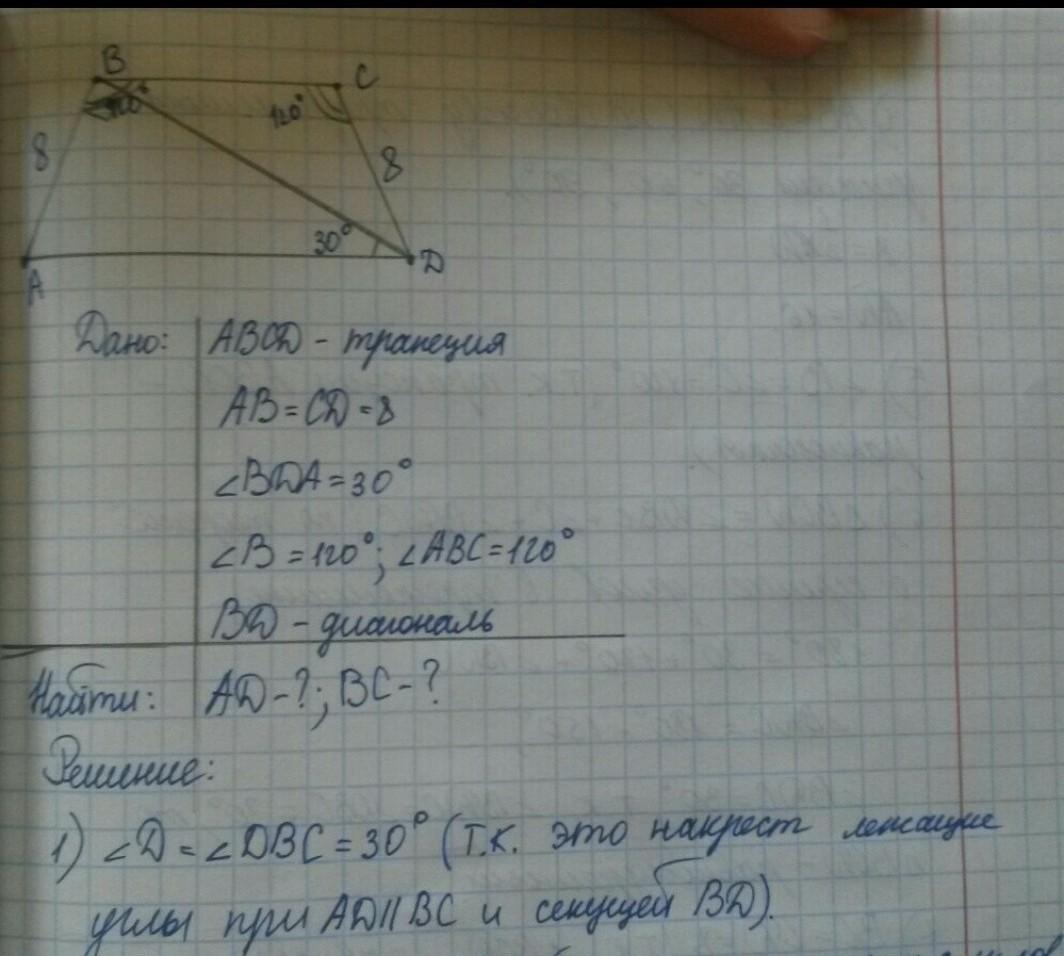 B
C
120°
120°
8
8
30°
A
D
Дано: ABCD - трапеция
AB = CD = 8
∠BDA = 30°
∠B = 120°; ∠ABC = 120°
BD - диагональ
Найти: AD - ?; BC - ?
Решение:
1) ∠D = ∠DBC = 30° (т.к. это накрест лежащие
углы при AD || BC и секущей BD).